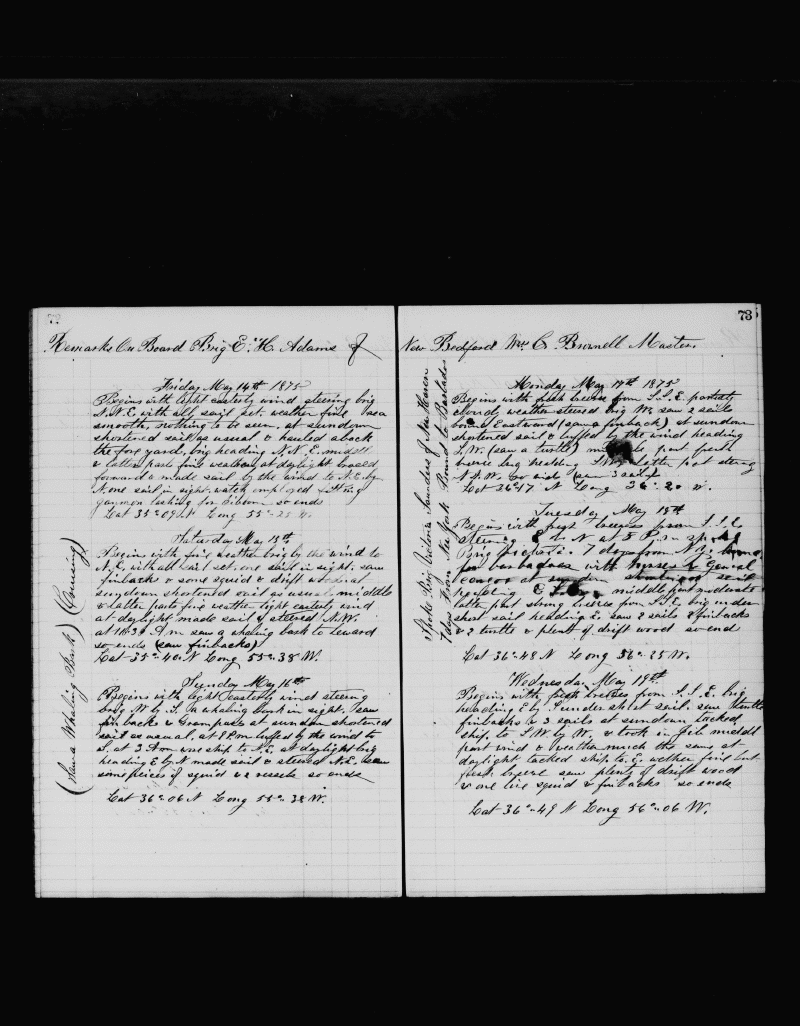 Remarks On Board Brig E. H. Adams of
Friday May 14th 1875
Begins with light easterly wind steering brig
N.N.E. with all sail set. weather fine sea
smooth. nothing to be seen. at sundown
shortened sail as usual & hauled aback
the fore yard, brig heading N.N.E. middle
& latter parts fine weather at daylight braced
forward & made sail by the wind to N.E. by
N. one sail in sight. watch employed fitting
gammon lashing for jibboom so ends
Lat 35-09 N Long 55-25 W.
Saturday May 15th
Begins with fine weather brig by the wind to
N.E. with all sail set. one sail in sight. saw
finbacks & some squid & drift wood. at
sundown shortened sail as usual. middle
& latter parts fine weather light easterly wind
at daylight made sail & steered N.W.
at 10.30 A.m saw a whaling bark to leward
so ends (saw finbacks)
Lat 35-40 N Long 55-38 W.
(Saw a Whaling Bark) (Cruising)
Sunday May 16th
Begins with light easterly wind steering
brig W by S. a whaling bark in sight. saw
finbacks & Grampuse at sundown shortened
sail as usual. at 8 P.m luffed by the wind to
S. at 3 A.m wore ship to N.E. at daylight brig
heading E by N made sail & steered N.E. saw
some pieces of squid & 2 vessels so ends
Lat 36-06 N Long 55-38 W.
73
New Bedford Wm C Brownell Master
Monday May 17th 1875
Begins with fresh breeze from S.S.E. partially
cloudy weather steered brig W. saw 2 sails
bound Eastward (saw a finback) at sundown
shortened sail & luffed by the wind heading
S.W. (saw a turtle) middle part fresh
breeze brig heading latter part steering
N.N.W. so ends (saw 3 sails)
Lat 36-17 N Long 56-20 W.
Spoke Brig Victoria Sanders of New Haven
7 days From New York Bound to Barbados
Tuesday May 18th
Begins with fresh breezes from S.S.E.
steering E by N at 5 P.m spoke
Brig Victoria 7 days from N.Y. bound
for barbadoes with horses & General
cargo at sundown shortened sail
heading middle part moderate
latter part strong breeze from S.S.E. brig under
short sail heading E. saw 2 sails & finbacks
& 2 turtle & plenty of drift wood so end
Lat 36-48 N Long 56-25 W.
Wednesday May 19th
Begins with fresh breezes from S.S.E. brig
heading E by S under short sail. saw turtle
finbacks & 3 sails at sundown tacked
ship. to S.W. by W. & took in jib middle
part wind & weather much the same at
daylight tacked ship to E. wether fine but
fresh breeze saw plenty of drift wood
& one live squid & finbacks so ends
Lat 36-49 N Long 56-06 W.